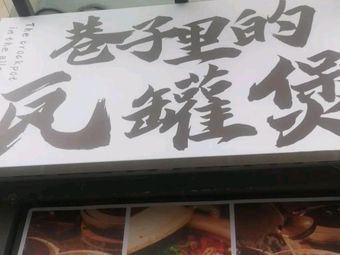 The crock pot
in the alley
巷子里的
瓦罐煲